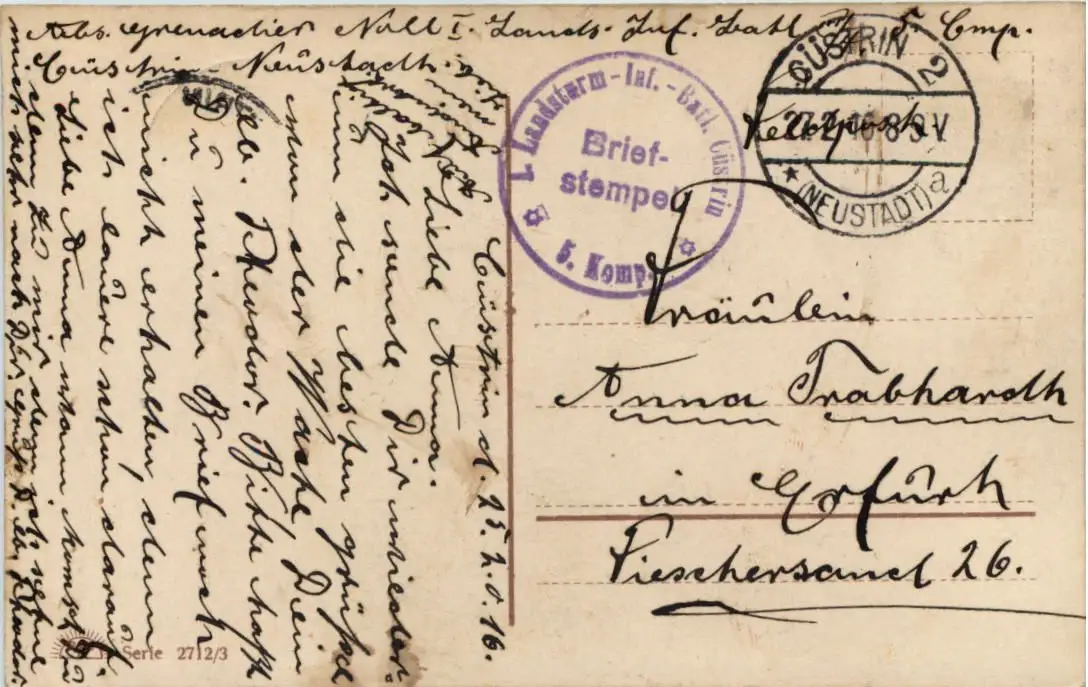 Abs. Grenadier Noll I. Lands. Inf. Batl. 5. Cmp.
Cüstrin Neustadt.
I. Landsturm-Inf.-Batl. Cüstrin
Brief-
stempel
5. Komp.
CÜSTRIN 2
27.2.16 8-9V.
(NEUSTADT) a
Feldpost.
Fräulein
Anna Trabhardt
in Erfurt
Pieschersand 26.
Cüstrin d. 25.2.16.
Liebe Anna.
Ich sende Dir wieder
um die besten grüße
von der Wache, Dein
lb. Theodor. Bitte hast
Du meinen Brief noch
nicht erhalten, denn
ich lauere schon darauf
Liebe Anna wann kommst Du
den zu mir, denn ich sehne
mich sehr nach Dir. Gruß D. lb. Theodor.
Serie 2712/3